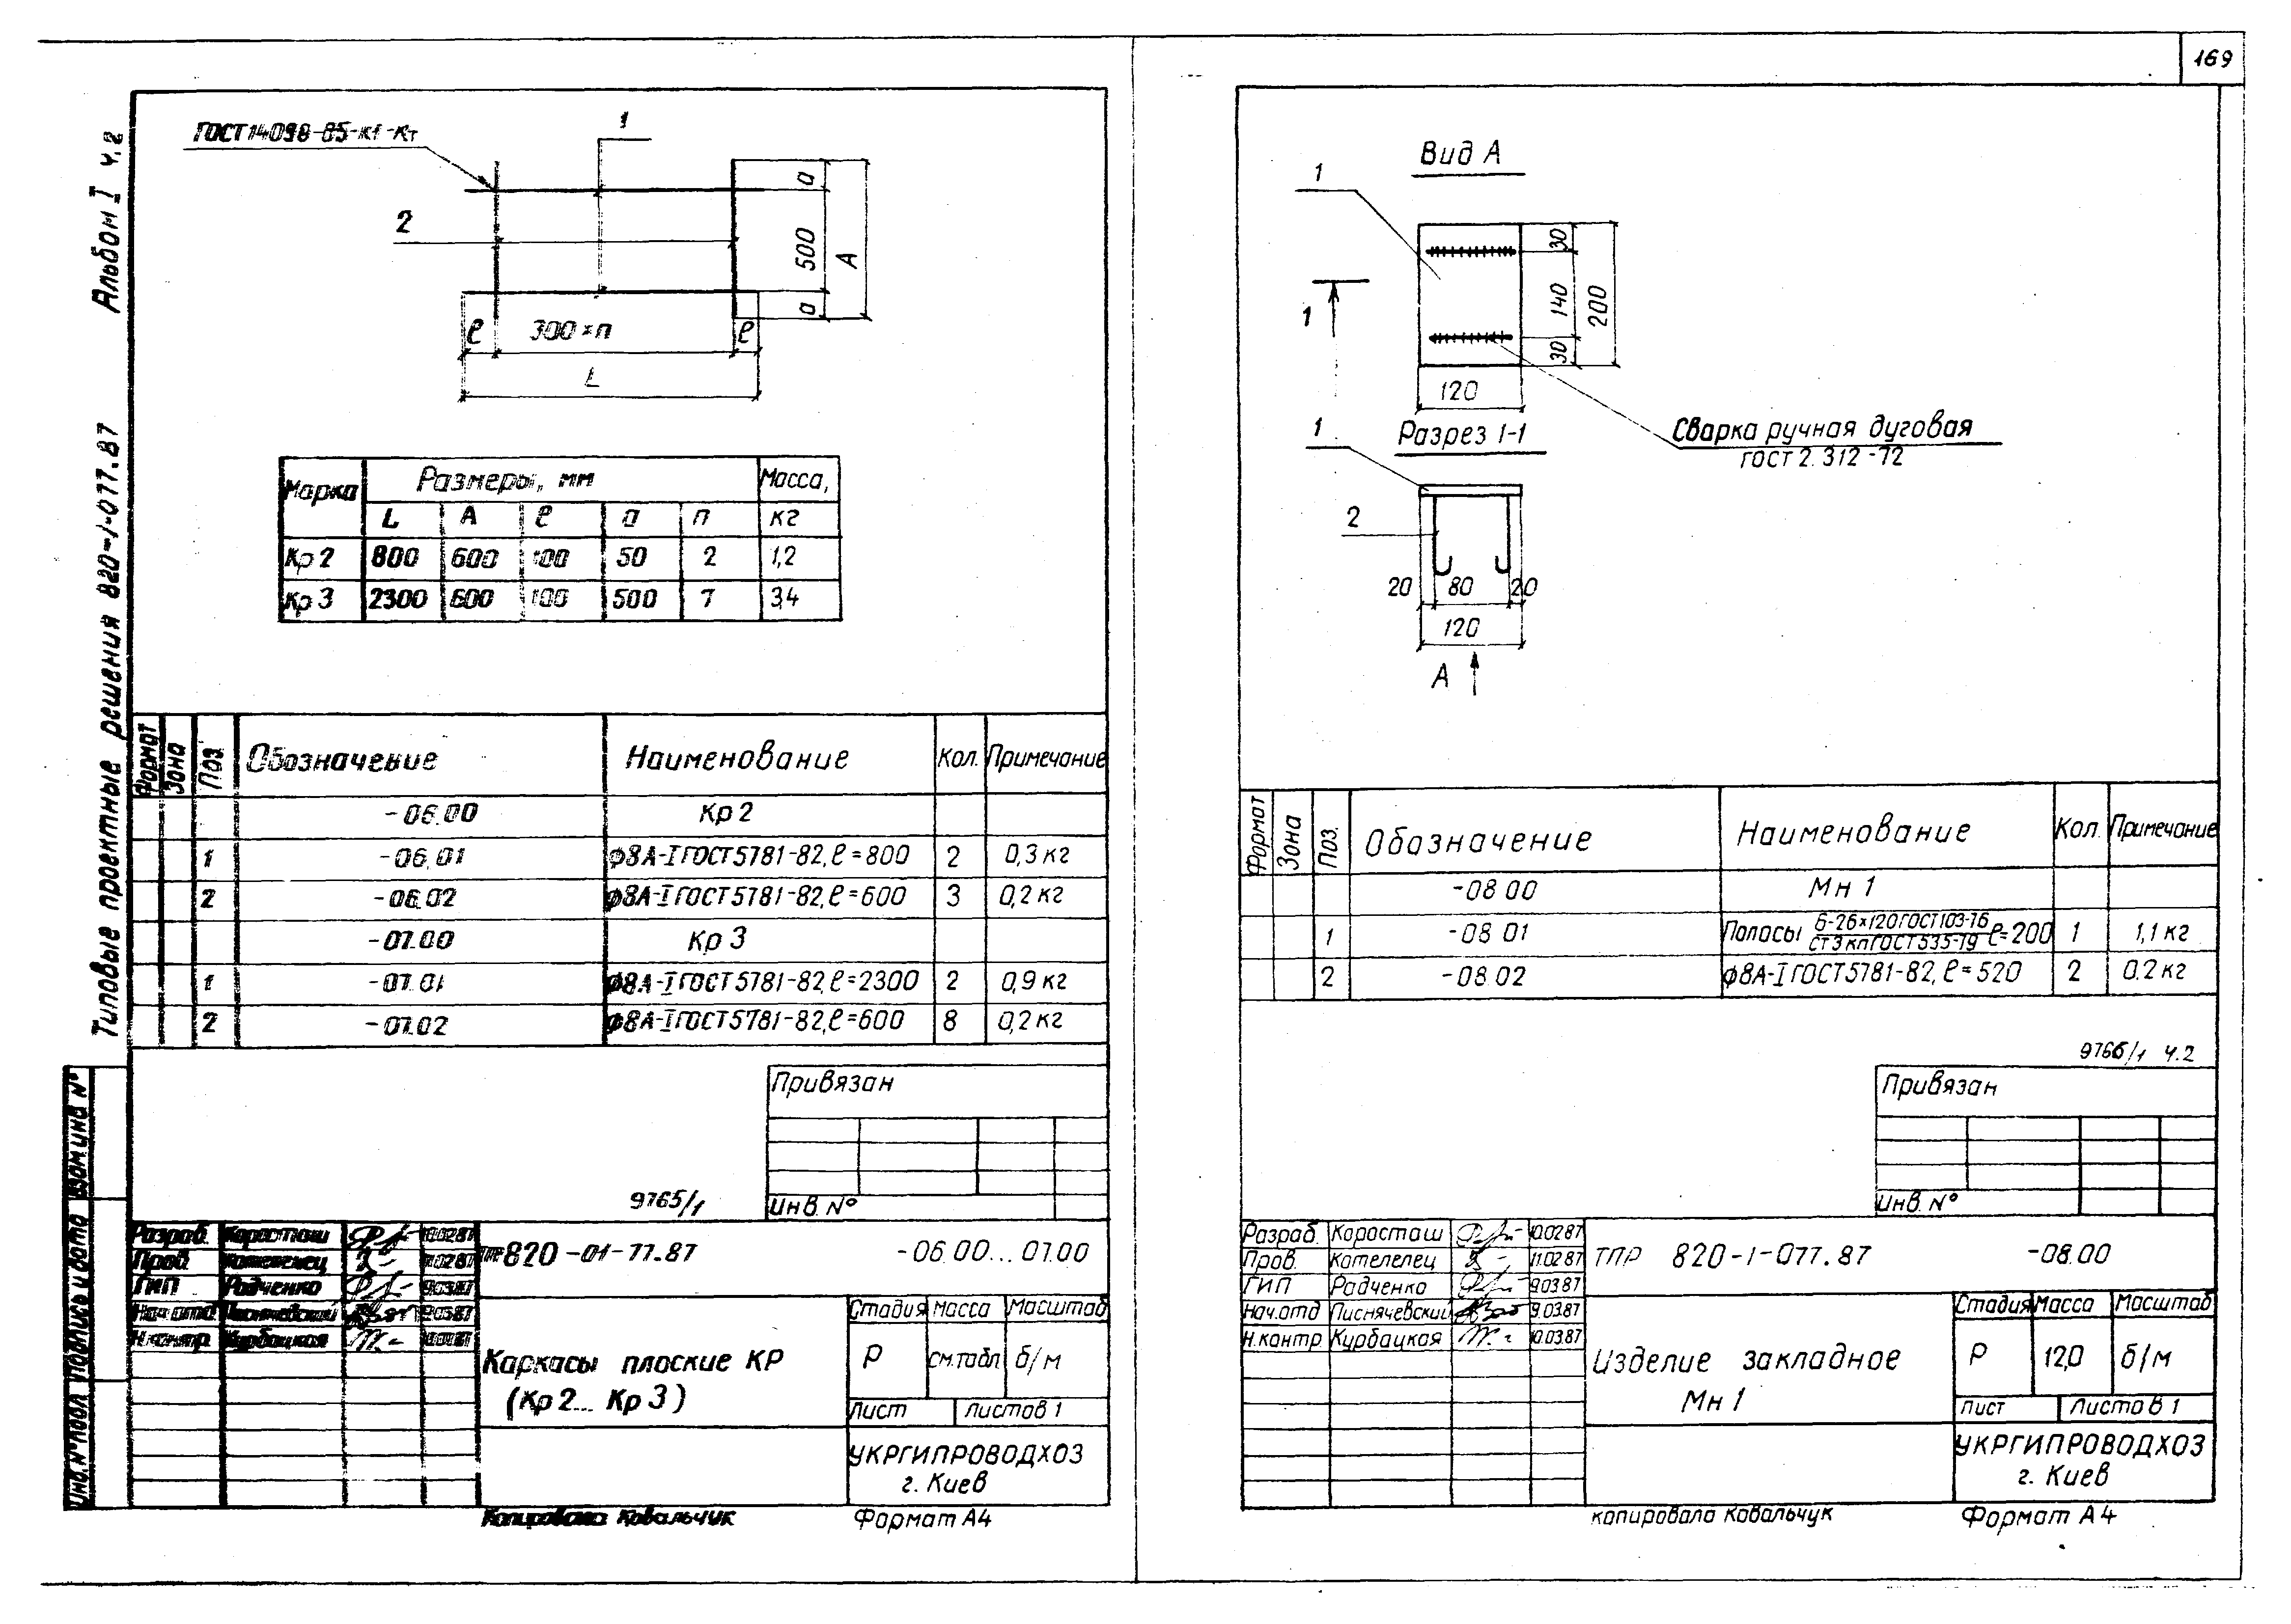 169
Альбом I ч.2
Типовые проектные решения 820-1-077.87
ГОСТ 14098-85-К1-Кт
1
2
а
500
а
А
ℓ
300×п
ℓ
L
Марка Размеры, мм Масса, кг
L А ℓ а п
Кр 2 800 600 100 50 2 1,2
Кр 3 2300 600 100 500 7 3,4
Формат Зона Поз. Обозначение Наименование Кол. Примечание
-06.00 Кр 2
1 -06.01 ф8А-I ГОСТ 5781-82, ℓ=800 2 0,3 кг
2 -06.02 ф8А-I ГОСТ 5781-82, ℓ=600 3 0,2 кг
-07.00 Кр 3
1 -07.01 ф8А-I ГОСТ 5781-82, ℓ=2300 2 0,9 кг
2 -07.02 ф8А-I ГОСТ 5781-82, ℓ=600 8 0,2 кг
Привязан
Инв. №
9765/1
Инв. № подл. Подпись и дата Взам инв №
Разраб. Коросташ 10.02.87
Пров. Котелелец 11.02.87
ГИП Радченко 9.03.87
Нач.отд Писнячевский 9.03.87
Н.контр. Курбацкая 10.03.87
ТПР 820-01-77.87 -06.00...07.00
Каркасы плоские КР
(Кр 2... Кр 3)
Стадия Масса Масштаб
Р см.табл б/м
Лист Листов 1
УКРГИПРОВОДХОЗ
г. Киев
Копировала Ковальчук Формат А4
Вид А
1
1
30
140
30
200
120
Сварка ручная дуговая
ГОСТ 2.312-72
Разрез 1-1
1
2
20 80 20
120
А
Формат Зона Поз. Обозначение Наименование Кол. Примечание
-08.00 Мн 1
1 -08.01 Полосы 6-26×120 ГОСТ 103-76 / Ст3кп ГОСТ 535-79 ℓ=200 1 1,1 кг
2 -08.02 ф8А-I ГОСТ 5781-82, ℓ=520 2 0.2 кг
9766/1 ч.2
Привязан
Инв. №
Разраб. Коросташ 10.02.87
Пров. Котелелец 11.02.87
ГИП Радченко 9.03.87
Нач.отд Писнячевский 9.03.87
Н.контр. Курбацкая 10.03.87
ТПР 820-1-077.87 -08.00
Изделие закладное
Мн 1
Стадия Масса Масштаб
Р 12,0 б/м
Лист Листов 1
УКРГИПРОВОДХОЗ
г. Киев
копировала Ковальчук Формат А4